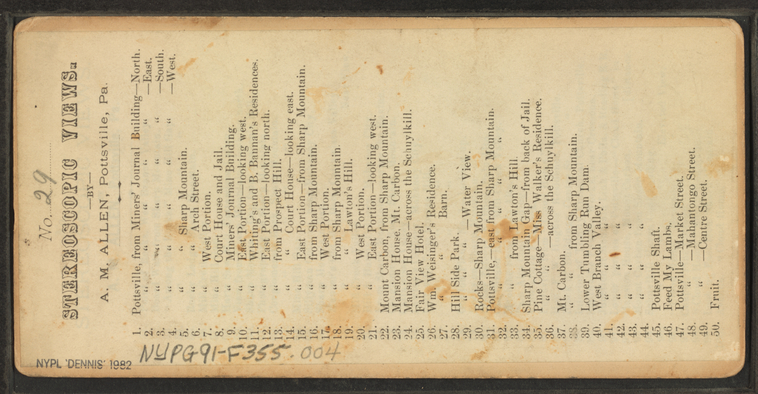 No. 29
STEREOSCOPIC VIEWS.
—BY—
A. M. ALLEN, Pottsville, Pa.
1. Pottsville, from Miners' Journal Building—North.
2. " " " " —East.
3. " " " " —South.
4. " " " " —West.
5. " " Sharp Mountain.
6. " " Arch Street.
7. " West Portion.
8. " Court House and Jail.
9. " Miners' Journal Building.
10. " East Portion—looking west.
11. " Whitfing's and B. Bannan's Residences.
12. " East Portion—looking north.
13. " from Prospect Hill.
14. " " Court House—looking east.
15. " East Portion—from Sharp Mountain.
16. " from Sharp Mountain.
17. " West Portion.
18. " from Sharp Mountain.
19. " " Lawton's Hill.
20. " West Portion.
21. " East Portion—looking west.
22. Mount Carbon, from Sharp Mountain.
23. Mansion House, Mt. Carbon.
24. Mansion House—across the Schuylkill.
25. Fair View Hotel.
26. Wm. Weisinger's Residence.
27. " " Barn.
28. Hill Side Park.
29. " " " —Water View.
30. Rocks—Sharp Mountain.
31. Pottsville,—east from Sharp Mountain.
32. " " " " "
33. " from Lawton's Hill.
34. Sharp Mountain Gap—from back of Jail.
35. Pine Cottage—Miss Walker's Residence.
36. " " —across the Schuylkill.
37. Mt. Carbon.
38. " " from Sharp Mountain.
39. Lower Tumbling Run Dam.
40. West Branch Valley.
41. " " "
42. " " "
43. " " "
44. " " "
45. Pottsville Shaft.
46. Feed My Lambs.
47. Pottsville—Market Street.
48. " —Mahantongo Street.
49. " —Centre Street.
50. Fruit.
NYPL 'DENNIS' 1982
NYPG91-F355 .004